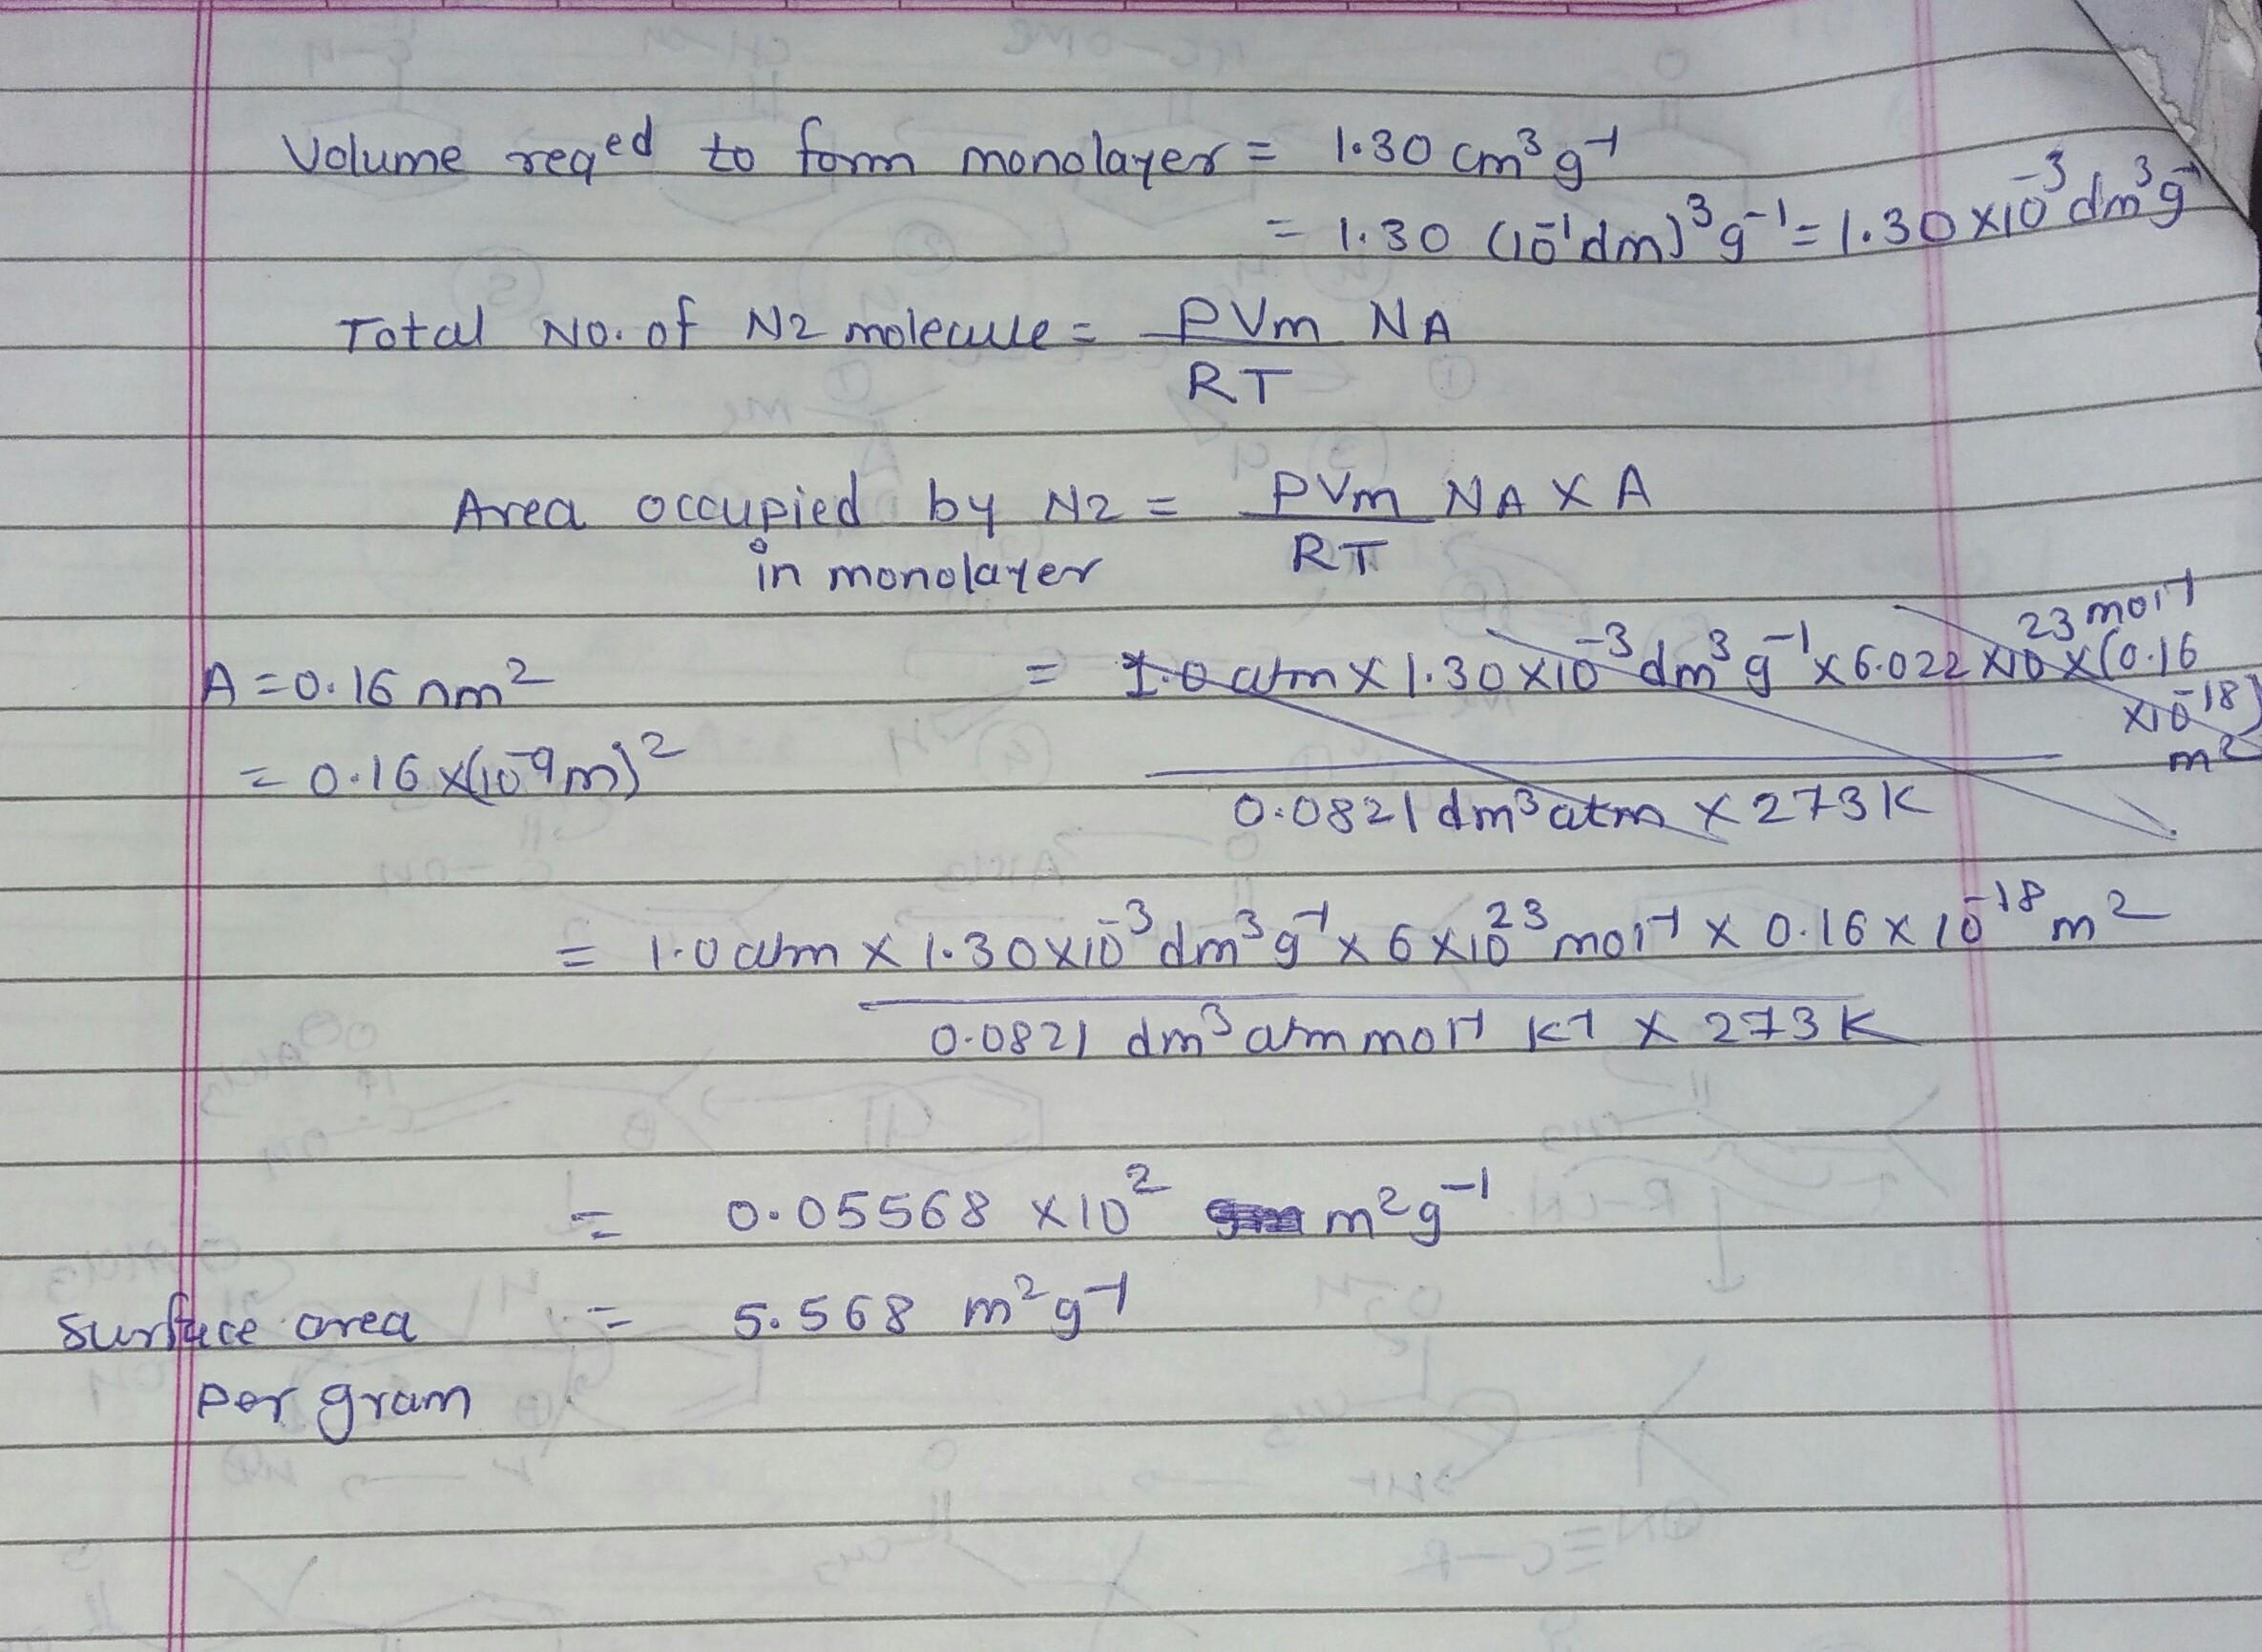 Volume reqed to form monolayer = 1.30 cm³ g⁻¹
= 1.30 (10⁻¹dm)³ g⁻¹ = 1.30 × 10⁻³ dm³ g⁻¹
Total No. of N2 molecule = PVm NA
RT
Area occupied by N2 = PVm NA X A
in monolayer RT
A = 0.16 nm² = 1.0 atm × 1.30 × 10⁻³ dm³ g⁻¹ × 6.022 × 10²³ mol⁻¹ × (0.16 × 10⁻¹⁸) m²
= 0.16 × (10⁻⁹ m)² 0.0821 dm³ atm × 273 K
= 1.0 atm × 1.30 × 10⁻³ dm³ g⁻¹ × 6 × 10²³ mol⁻¹ × 0.16 × 10⁻¹⁸ m²
0.0821 dm³ atm mol⁻¹ K⁻¹ × 273 K
= 0.05568 × 10² m² g⁻¹
Surface area = 5.568 m² g⁻¹
per gram